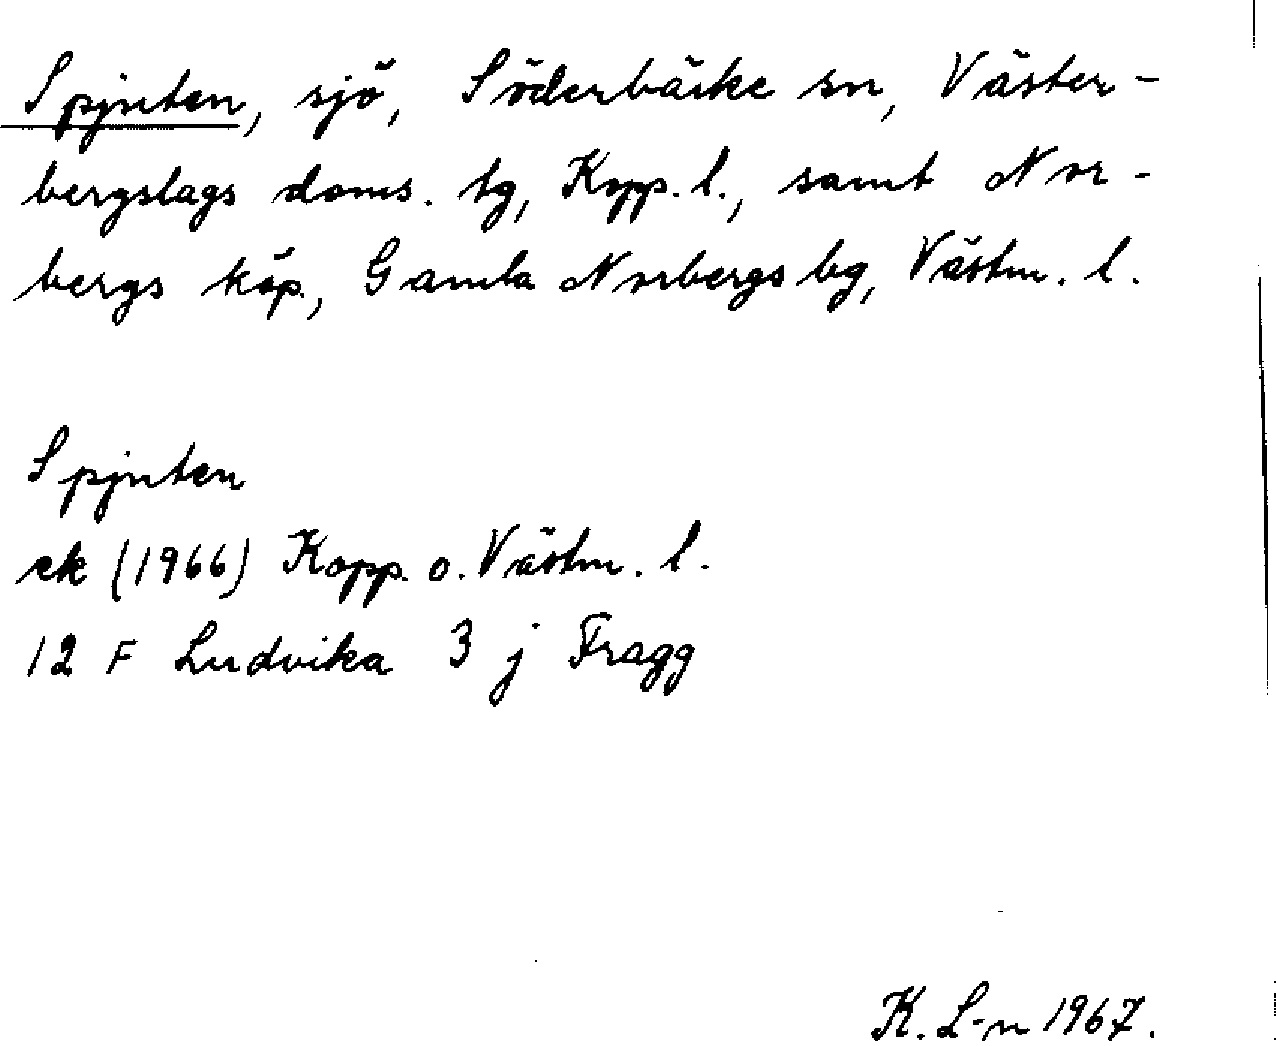 Spjuten, sjö, Söderbärke sn, Väster-
bergslags doms. tg, Kopp. l., samt Nor-
bergs köp., Gamla Norbergs bg, Västm. l.
Spjuten
ek (1966) Kopp. o. Västm. l.
12 F Ludvika 3 j Fragg
K. L-n 1967.